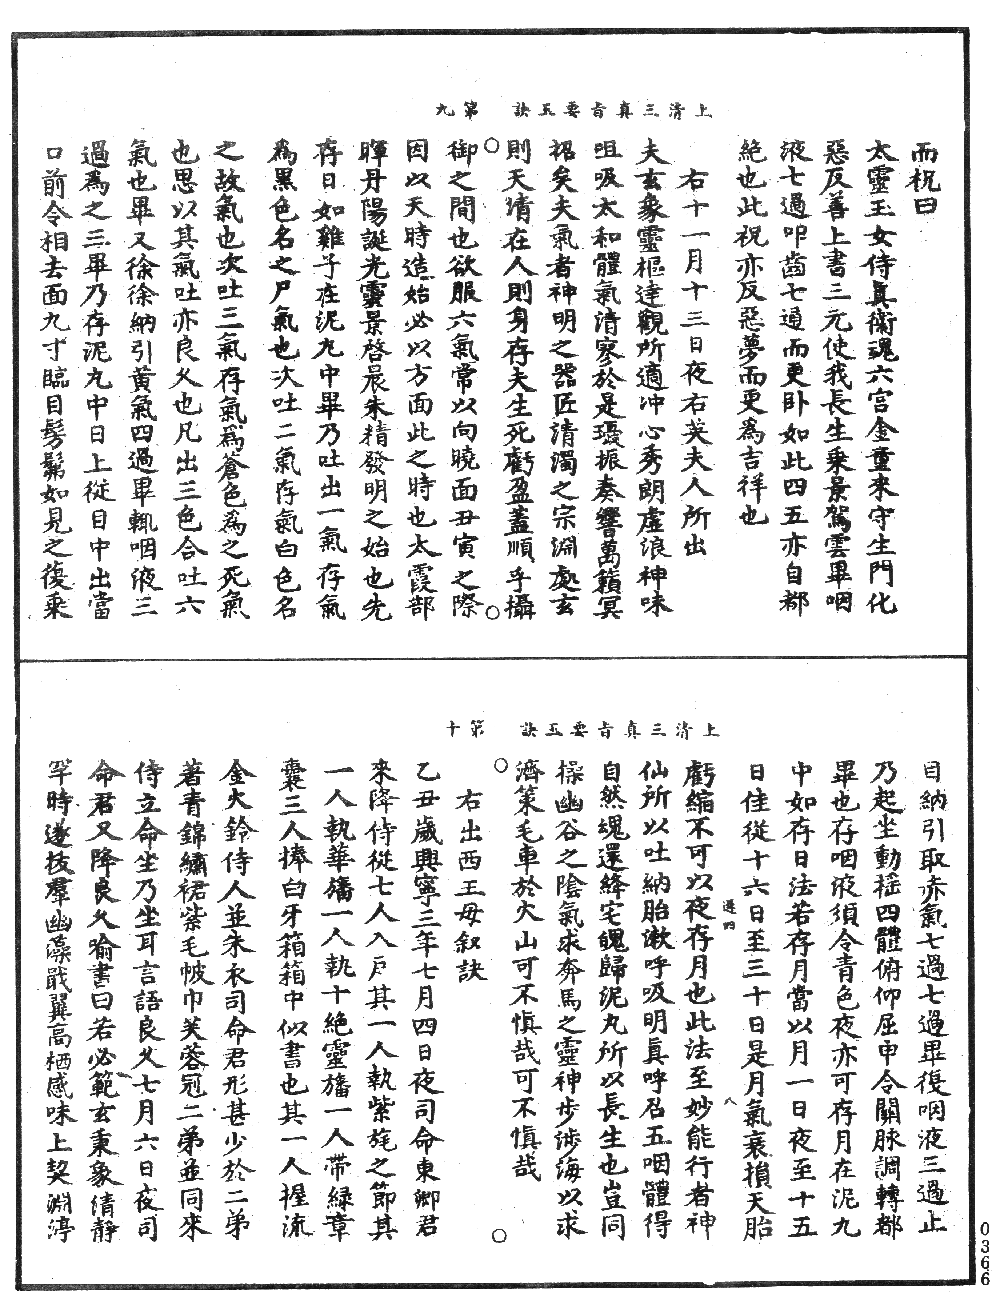 上清三真旨要玉訣　第九
而祝曰
太靈玉女侍真衛魂六宮金童來守生門化
惡反善上書三元使我長生乘景駕雲畢咽
液七過叩齒七通而更卧如此四五亦自都
絕也此祝亦反惡夢而更為吉祥也
右十一月十三日夜右英夫人所出
夫玄象靈樞達觀所適冲心秀朗虛浪神味
咀吸太和體氣清寥於是瓊振奏響萬籟冥
招矣夫氣者神明之器匠清濁之宗淵處玄
則天清在人則身存夫生死虧盈蓋順乎攝
御之間也欲服六氣常以向曉面丑寅之際
因以天時造始必以方面此之時也太霞部
暉丹陽誕光靈景啓晨朱精發明之始也先
存日如雞子在泥丸中畢乃吐出一氣存氣
為黑色名之尸氣也次吐二氣存氣白色名
之故氣也次吐三氣存氣為蒼色為之死氣
也思以其氣吐亦良久也凡出三色合吐六
氣也畢又徐徐納引黃氣四過畢輒咽液三
過為之三畢乃存泥丸中日上從目中出當
口前令相去面九寸臨目髣髴如見之復乘
上清三真旨要玉訣　第十
目納引取赤氣七過七過畢復咽液三過止
乃起坐動搖四體俯仰屈申令關脉調轉都
畢也存咽液須令青色夜亦可存月在泥丸
中如存日法若存月當以月一日夜至十五
日佳從十六日至三十日是月氣衰損天胎
虧縮不可以夜存月也此法至妙能行者神
遜四　八
仙所以吐納胎漱呼吸明真呼召五咽體得
自然魂還絳宅魄歸泥丸所以長生也豈同
操幽谷之陰氣求奔馬之靈神步涉海以求
濟策毛車於火山可不慎哉可不慎哉
右出西王母叙訣
乙丑歲興寧三年七月四日夜司命東鄉君
來降侍從七人入戶其一人執紫旄之節其
一人執華旛一人執十絕靈旛一人帶綠章
囊三人捧白牙箱箱中似書也其一人握流
金火鈴侍人並朱衣司命君形甚少於二弟
著青錦繡裙紫毛帔巾芙蓉冠二弟並同來
侍立命坐乃坐耳言語良久七月六日夜司
命君又降良久喻書曰若必範玄秉象清靜
罕時遂拔群幽藻戢翼高栖感味上契淵渟
0366